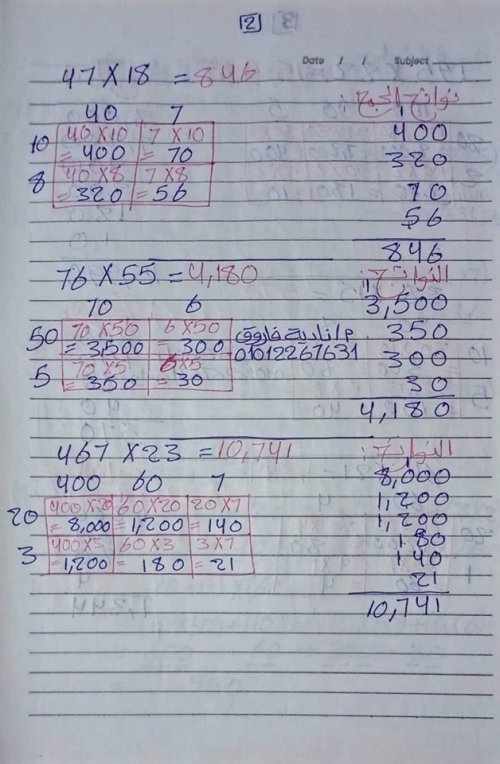 2
Date / / Subject
47 X 18 = 846
نواتج الجمع:
40 7
10 40 X 10 7 X 10
= 400 = 70
8 40 X 8 7 X 8
= 320 = 56
400
320
70
56
846
76 X 55 = 4,180
النواتج:
70 6
50 70 X 50 6 X 50
= 3,500 = 300
5 70 X 5 6 X 5
= 350 = 30
م/نادية فاروق
01012267631
3,500
350
300
30
4,180
467 X 23 = 10,741
النواتج:
400 60 7
20 400 X 20 60 X 20 20 X 7
= 8,000 = 1,200 = 140
3 400 X 3 60 X 3 3 X 7
= 1,200 = 180 = 21
8,000
1,200
1,200
180
140
21
10,741